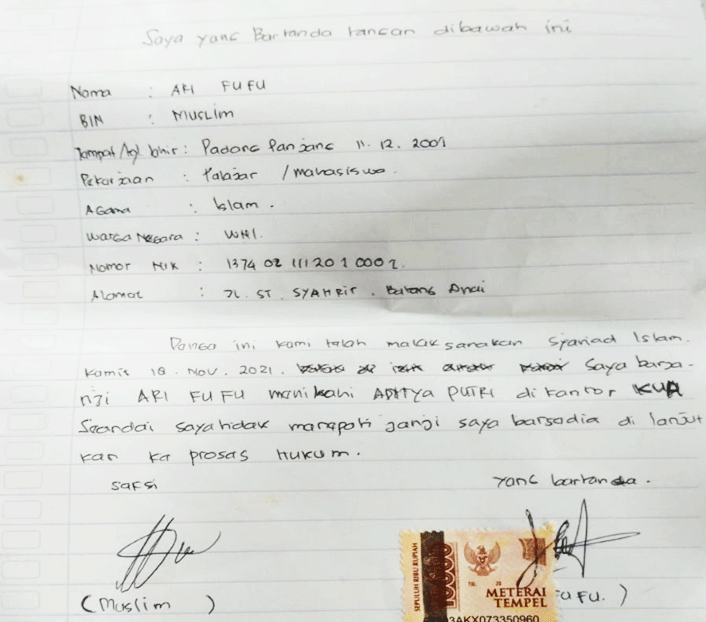 Saya yang Bartanda tangan dibawah ini
Nama : ARI FUFU
BIN : MUSLIM
Tampat/tgl lahir : Padang Panjang 11. 12. 2001
Pekarjaan : Palajar / mahasiswa.
Agama : Islam.
Warga Negara : WNI.
Nomor NIK : 1374 02 111201 0002.
Alamat : JL. ST. SYAHRIR. Batang Anai
Dangan ini kami talah malaksanakan Syariad Islam.
Kamis 18. NOV. 2021. Saya barja-
nji ARI FUFU manikahi ADITYA PUTRI di kantor KUA
Seandai saya tidak manapati janji saya barsadia di lanjut
kan ka prosas Hukum.
saksi yang bartanda.
SEPULUH RIBU RUPIAH
10000
TGL. 20
METERAI
TEMPEL
3AKX073350960
(Muslim ) FUFU. )